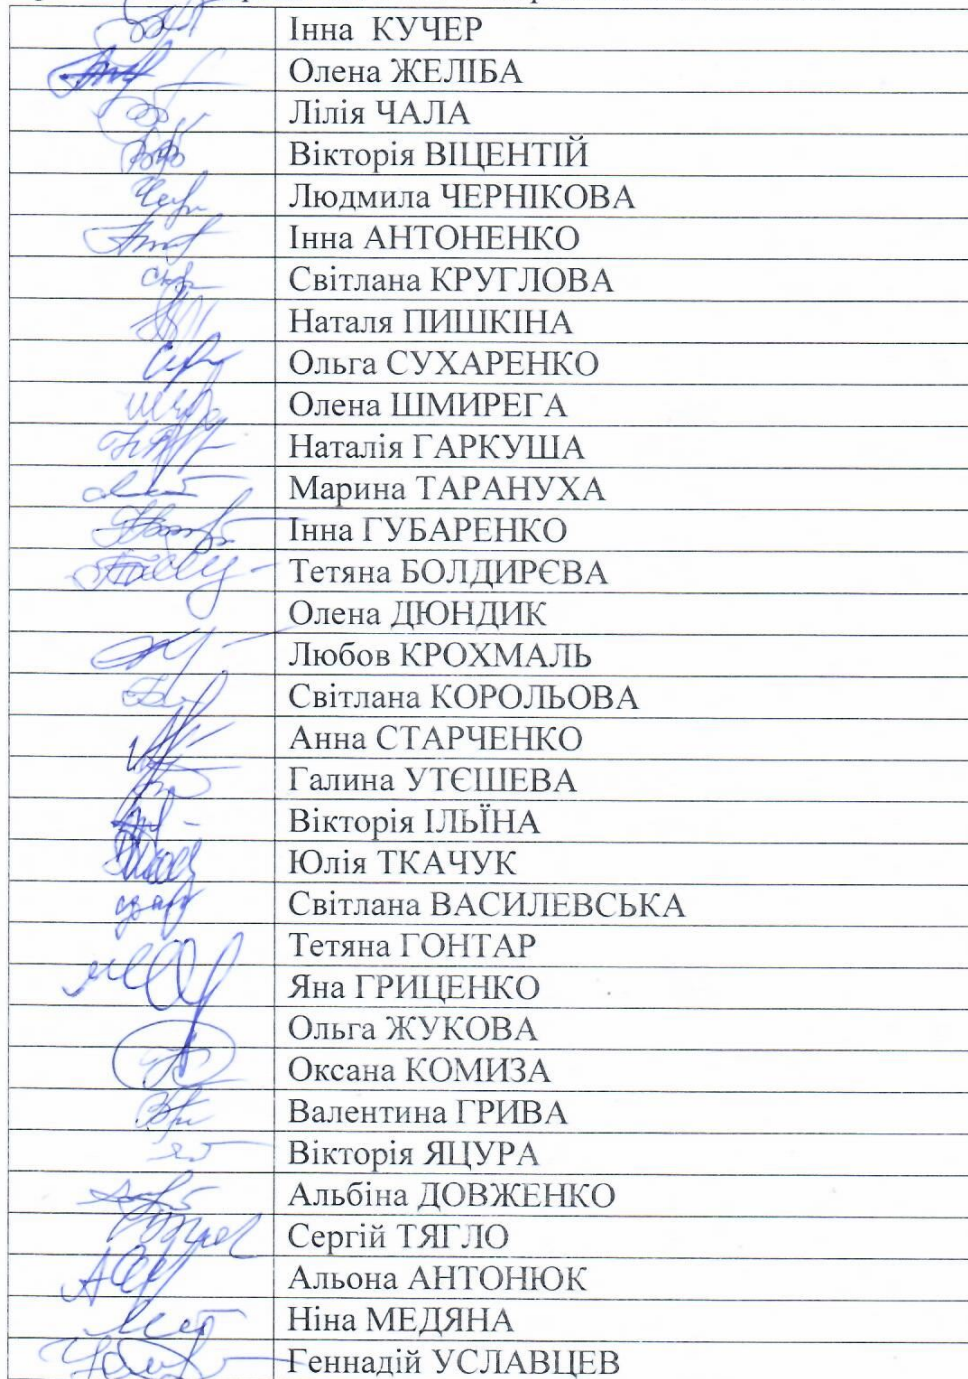 Інна КУЧЕР
Олена ЖЕЛІБА
Лілія ЧАЛА
Вікторія ВІЦЕНТІЙ
Людмила ЧЕРНІКОВА
Інна АНТОНЕНКО
Світлана КРУГЛОВА
Наталя ПИШКІНА
Ольга СУХАРЕНКО
Олена ШМИРЕГА
Наталія ГАРКУША
Марина ТАРАНУХА
Інна ГУБАРЕНКО
Тетяна БОЛДИРЄВА
Олена ДЮНДИК
Любов КРОХМАЛЬ
Світлана КОРОЛЬОВА
Анна СТАРЧЕНКО
Галина УТЄШЕВА
Вікторія ІЛЬЇНА
Юлія ТКАЧУК
Світлана ВАСИЛЕВСЬКА
Тетяна ГОНТАР
Яна ГРИЦЕНКО
Ольга ЖУКОВА
Оксана КОМИЗА
Валентина ГРИВА
Вікторія ЯЦУРА
Альбіна ДОВЖЕНКО
Сергій ТЯГЛО
Альона АНТОНЮК
Ніна МЕДЯНА
Геннадій УСЛАВЦЕВ